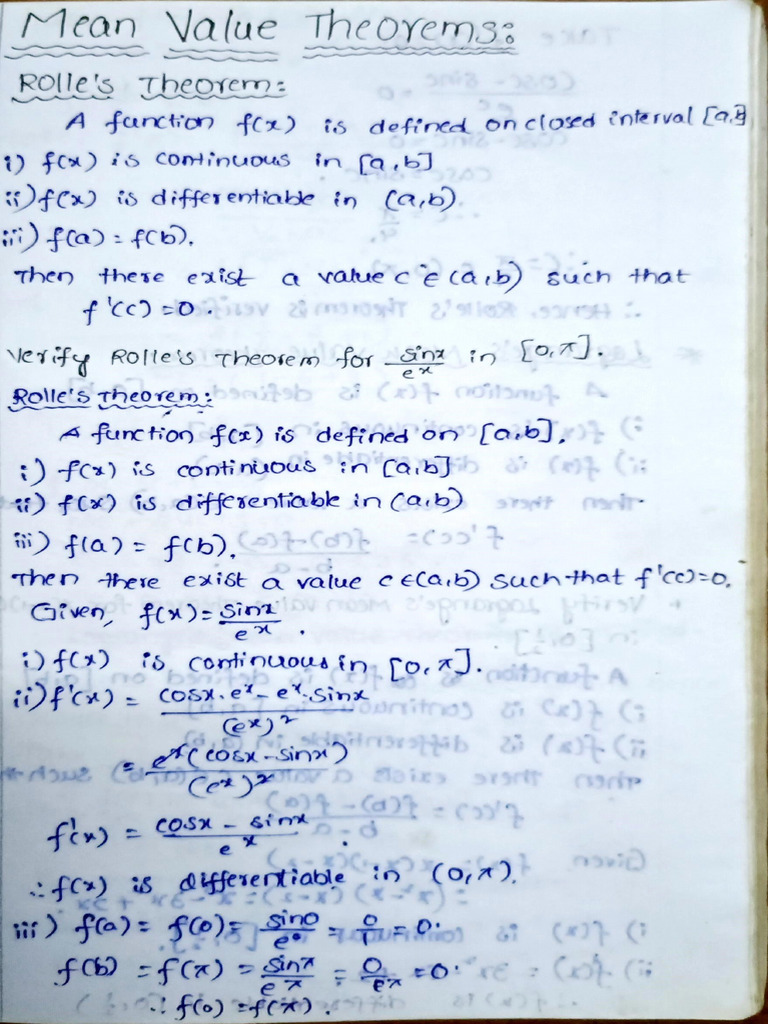 Mean Value Theorems:
Rolle's Theorem:
A function f(x) is defined on closed interval [a,b]
i) f(x) is continuous in [a,b]
ii) f(x) is differentiable in (a,b).
iii) f(a) = f(b).
Then there exist a value c ∈ (a,b) such that
f'(c) = 0.
Verify Rolle's Theorem for sinx/e^x in [0,π].
Rolle's Theorem:
A function f(x) is defined on [a,b].
i) f(x) is continuous in [a,b]
ii) f(x) is differentiable in (a,b)
iii) f(a) = f(b).
Then there exist a value c ∈ (a,b) such that f'(c) = 0.
Given, f(x) = sinx/e^x.
i) f(x) is continuous in [0,π].
ii) f'(x) = (cosx.e^x - e^x.sinx)/(e^x)^2
= e^x(cosx - sinx)/(e^x)^2
f'(x) = (cosx - sinx)/e^x.
∴ f(x) is differentiable in (0,π).
iii) f(a) = f(0) = sin0/e^0 = 0/1 = 0.
f(b) = f(π) = sinπ/e^π = 0/e^π = 0.
∴ f(0) = f(π).